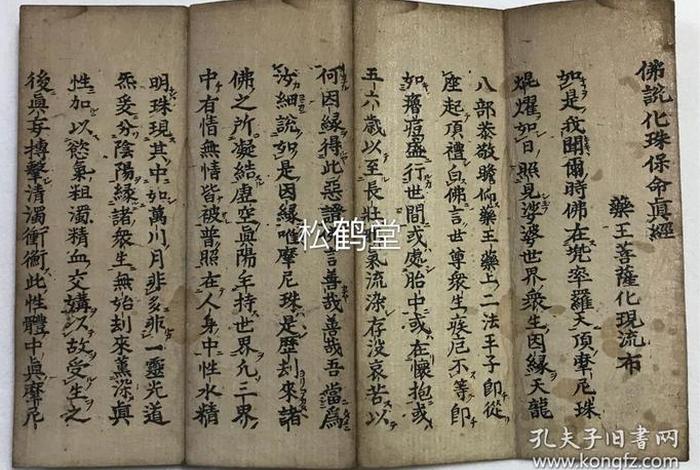 佛說化珠保命眞經
藥王菩薩化現流布
如是我聞爾時佛在兜率羅天頂摩尼珠
焜耀如日照見娑婆世界衆生因緣天龍
八部恭敬瞻仰藥王藥上二法王子即從
座起頂禮白佛言世尊衆生疾厄不等即
如痘盛行世間或處胎中或在懷抱或
五六歲以至長壯氣流染存没哀苦以
何因緣得此惡言善哉善哉吾當爲
汝細說如是因緣唯摩尼珠是歷刼來諸
佛之所凝結虛空眞陽持世界三界
中有情無情皆被普照在人身中性水精
明珠現其中如萬川月非多非一靈光道
炁爰分陰陽諸衆生無始刼來薰染眞
性加以慾氣粗濁精血交搆以故受生之
後眞妄搏擊清濁衝衝此性體中眞摩尼
松鹤堂
孔夫子旧书网
www.kongfz.com